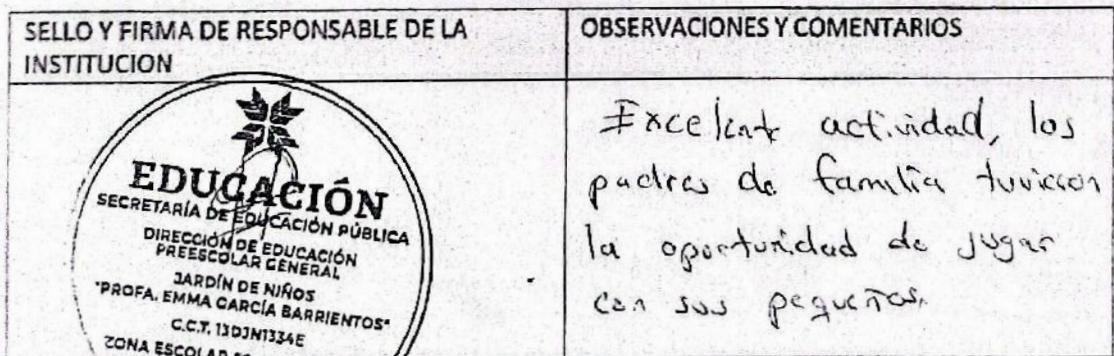 SELLO Y FIRMA DE RESPONSABLE DE LA
INSTITUCION
OBSERVACIONES Y COMENTARIOS
EDUCACIÓN
SECRETARÍA DE EDUCACIÓN PÚBLICA
DIRECCIÓN DE EDUCACIÓN
PREESCOLAR GENERAL
JARDÍN DE NIÑOS
"PROFA. EMMA GARCÍA BARRIENTOS"
C.C.T. 13DJN1334E
ZONA ESCOLAR
Excelente actividad, los
padres de familia tuvieron
la oportunidad de jugar
con sus pequeños.